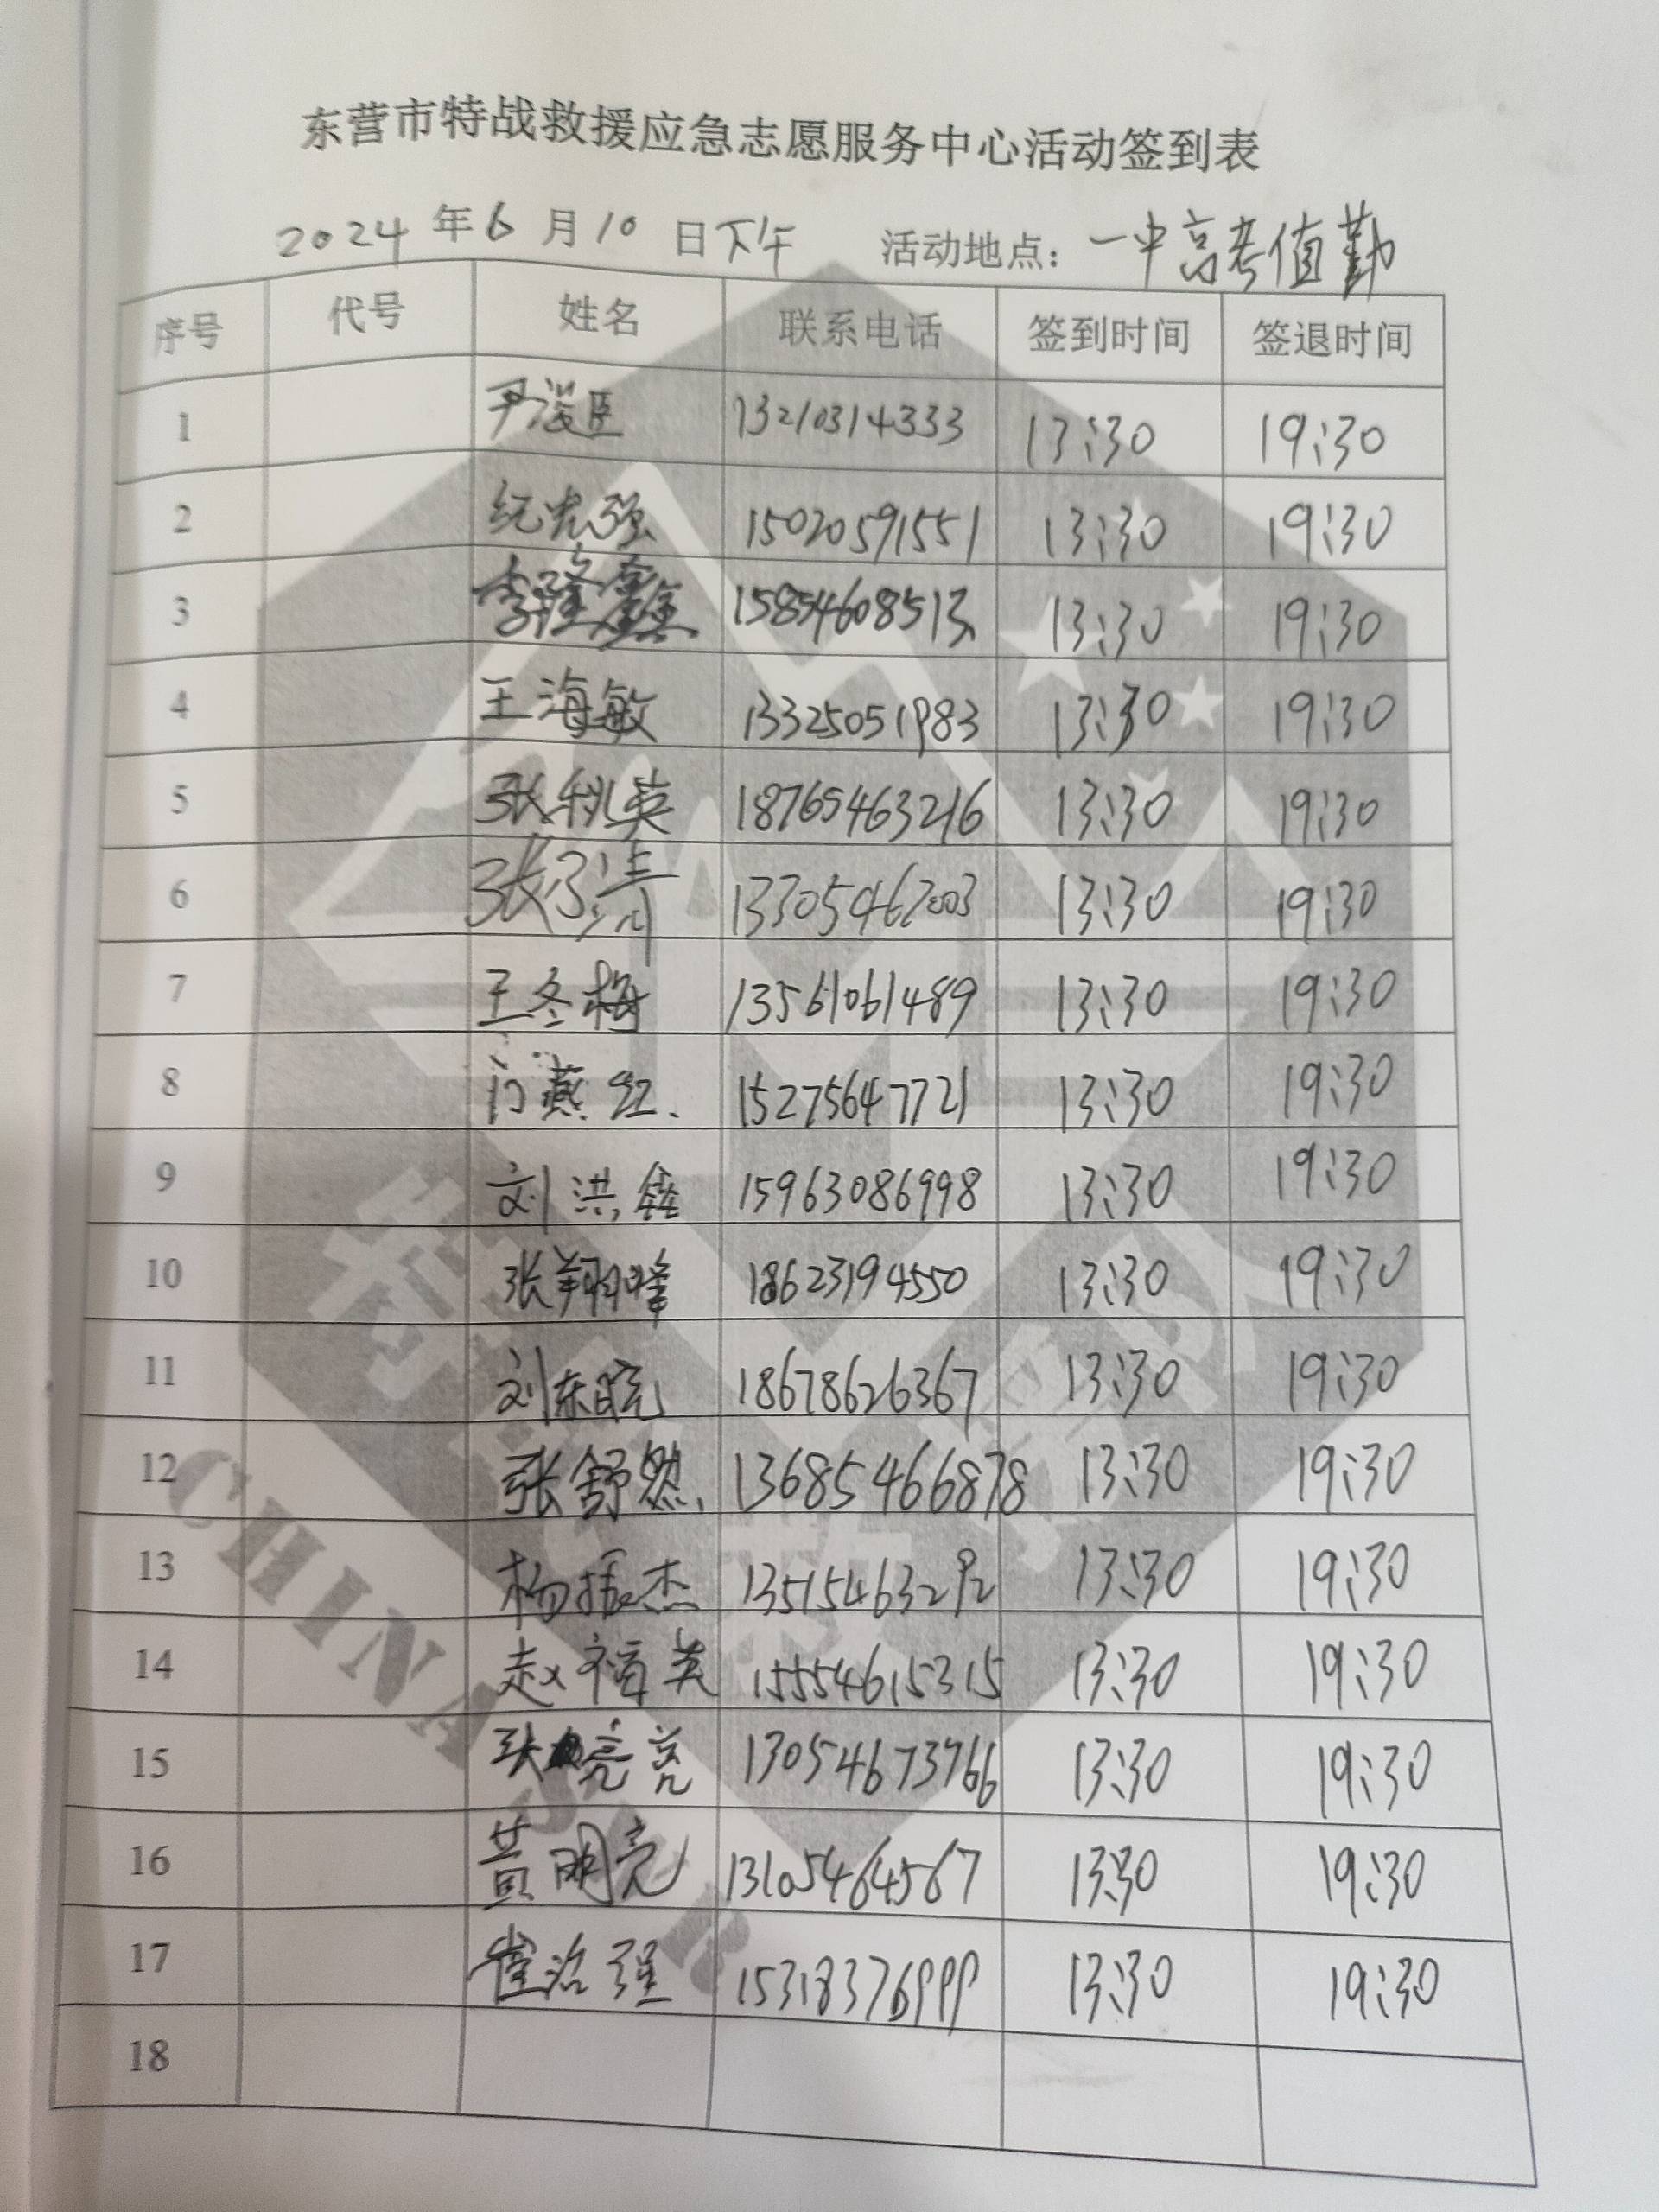 东营市特战救援应急志愿服务中心活动签到表
2024 年 6 月 10 日下午 活动地点：一中高考值勤
序号 代号 姓名 联系电话 签到时间 签退时间
1 13210314333 13:30 19:30
2 纪光强 15020591551 13:30 19:30
3 李隆鑫 13:30 19:30
4 王海敏 13325051983 13:30 19:30
5 张秋英 18765463216 13:30 19:30
6 13:30 19:30
7 王冬梅 13561061489 13:30 19:30
8 门燕红 15275647721 13:30 19:30
9 刘洪 15963086998 13:30 19:30
10 张翔峰 18623194550 13:30 19:30
11 刘东晓 18678626367 13:30 19:30
12 张舒然 13685466878 13:30 19:30
13 杨振杰 13515463292 13:30 19:30
14 赵英 15554615315 13:30 19:30
15 张亮亮 13054673766 13:30 19:30
16 黄明亮 13105464567 13:30 19:30
17 崔治强 15318376999 13:30 19:30
18
CHINA